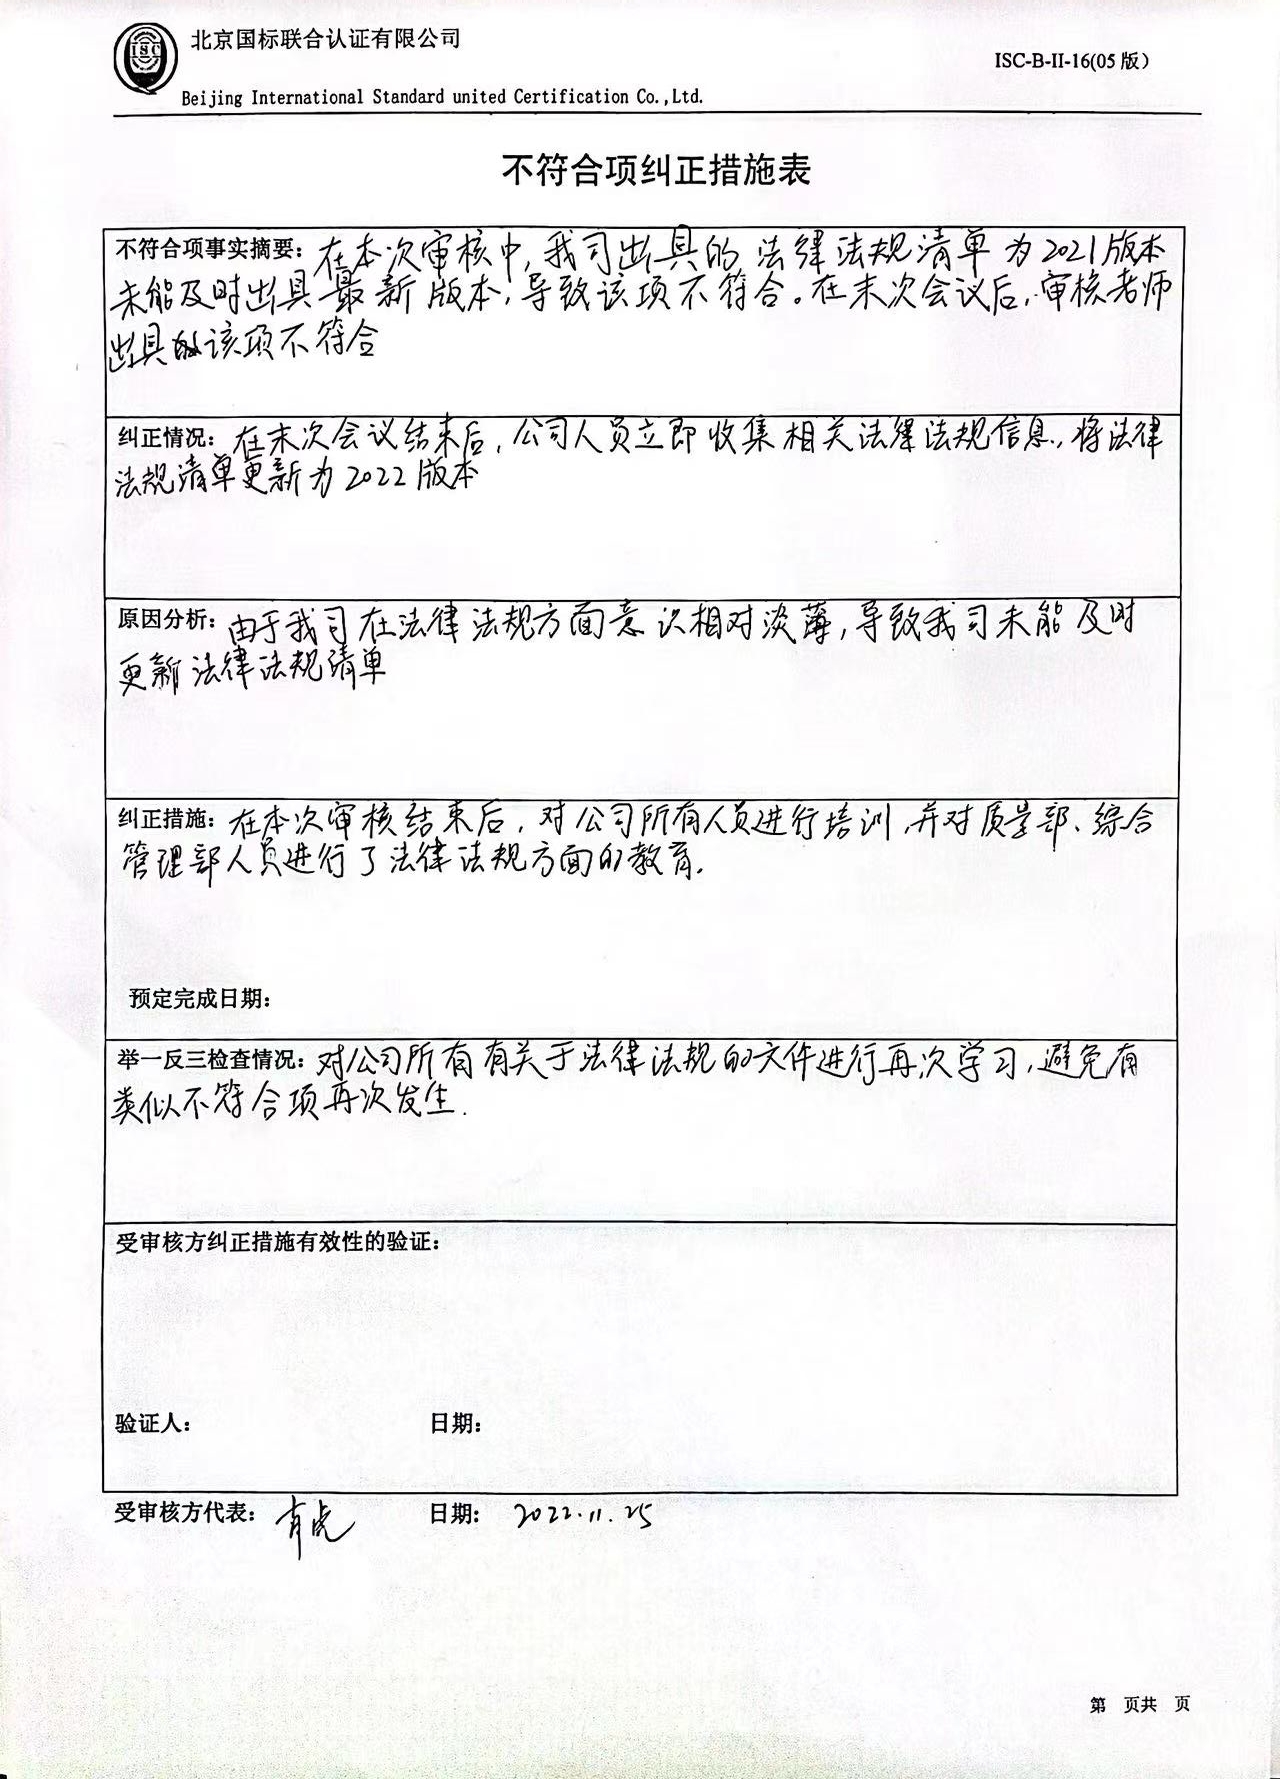 北京国标联合认证有限公司
ISC-B-II-16(05 版)
ISC
Beijing International Standard united Certification Co.,Ltd.
不符合项纠正措施表
不符合项事实摘要：在本次审核中，我司出具的 法律法规清单 为2021版本
未能及时出具最新版本，导致该项不符合。在末次会议后，审核老师
出具该项不符合
纠正情况：在末次会议结束后，公司人员立即收集相关法律法规信息，将法律
法规清单更新为2022版本
原因分析：由于我司在法律法规方面意识相对淡薄，导致我司未能及时
更新法律法规清单
纠正措施：在本次审核结束后，对公司所有人员进行培训，并对质量部、综合
管理部人员进行了法律法规方面的教育.
预定完成日期：
举一反三检查情况：对公司所有有关于法律法规的文件进行再次学习，避免有
类似不符合项再次发生.
受审核方纠正措施有效性的验证：
验证人： 日期：
受审核方代表： 日期： 2022.11.25
第 页共 页